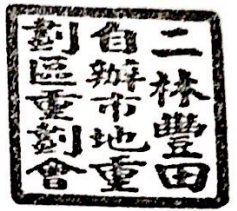 二林豐田
自辦市地重
劃區重劃會